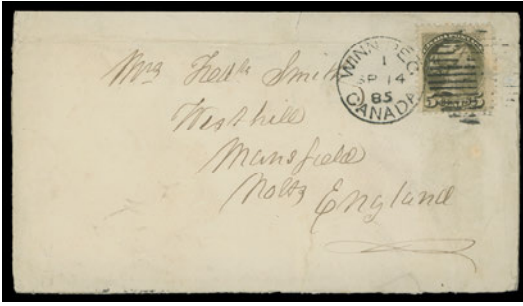 WINNIPEG
1
SP 14
85
CANADA
5 5
Mrs Fredk Smith
Westhill
Mansfield
Notts England